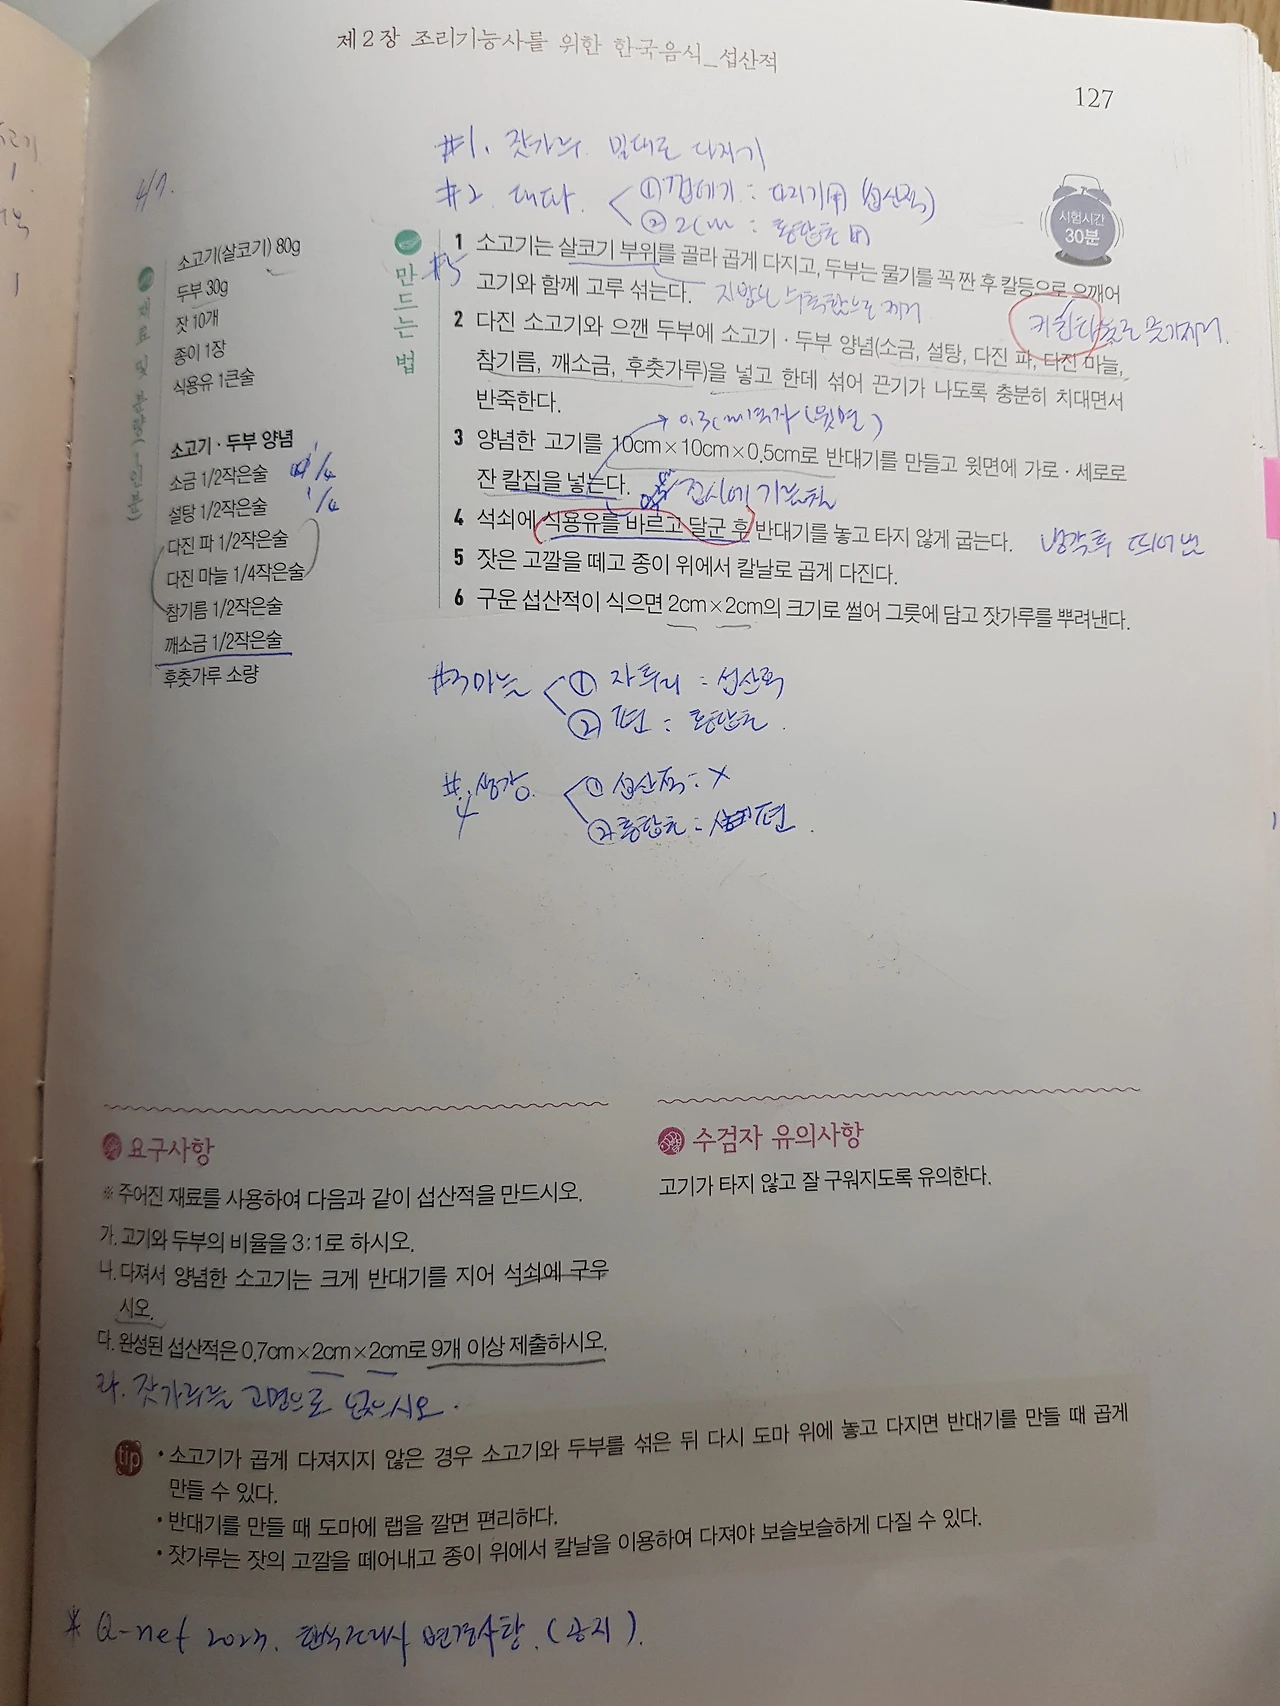 제2장 조리기능사를 위한 한국음식_섭산적
127
#1. 잣가루 밀대로 다지기
#2. 대파 ① 껍데기 : 다지기用 (섭산적)
② 2cm : 홍합초用
4/7.
시험시간
30분
재료 및 분량(1인분)
소고기(살코기) 80g
두부 30g
잣 10개
종이 1장
식용유 1큰술
소고기·두부 양념
소금 1/2작은술 1/4
설탕 1/2작은술 1/4
다진 파 1/2작은술
다진 마늘 1/4작은술
참기름 1/2작은술
깨소금 1/2작은술
후춧가루 소량
만드는 법
#5
1 소고기는 살코기 부위를 골라 곱게 다지고, 두부는 물기를 꼭 짠 후 칼등으로 으깨어
고기와 함께 고루 섞는다. 제거
키친타올로 물기제거.
2 다진 소고기와 으깬 두부에 소고기·두부 양념(소금, 설탕, 다진 파, 다진 마늘,
참기름, 깨소금, 후춧가루)을 넣고 한데 섞어 끈기가 나도록 충분히 치대면서
반죽한다.
0.3cm (윗면)
3 양념한 고기를 10cm×10cm×0.5cm로 반대기를 만들고 윗면에 가로·세로로
잔 칼집을 넣는다. 접시에 기름칠
4 석쇠에 식용유를 바르고 달군 후 반대기를 놓고 타지 않게 굽는다. 냉각후 띄어냄
5 잣은 고깔을 떼고 종이 위에서 칼날로 곱게 다진다.
6 구운 섭산적이 식으면 2cm×2cm의 크기로 썰어 그릇에 담고 잣가루를 뿌려낸다.
#3 마늘 ① 자투리 : 섭산적
② 편 : 홍합초.
#4 생강. ① 섭산적 : X
② 홍합초 : 편.
요구사항
※ 주어진 재료를 사용하여 다음과 같이 섭산적을 만드시오.
가. 고기와 두부의 비율을 3:1로 하시오.
나. 다져서 양념한 소고기는 크게 반대기를 지어 석쇠에 구우
시오.
다. 완성된 섭산적은 0.7cm×2cm×2cm로 9개 이상 제출하시오.
라. 잣가루는 고명으로 얹으시오.
수검자 유의사항
고기가 타지 않고 잘 구워지도록 유의한다.
tip
• 소고기가 곱게 다져지지 않은 경우 소고기와 두부를 섞은 뒤 다시 도마 위에 놓고 다지면 반대기를 만들 때 곱게
만들 수 있다.
• 반대기를 만들 때 도마에 랩을 깔면 편리하다.
• 잣가루는 잣의 고깔을 떼어내고 종이 위에서 칼날을 이용하여 다져야 보슬보슬하게 다질 수 있다.
* Q-net 2023. 한식조리사 변경사항. (공지).